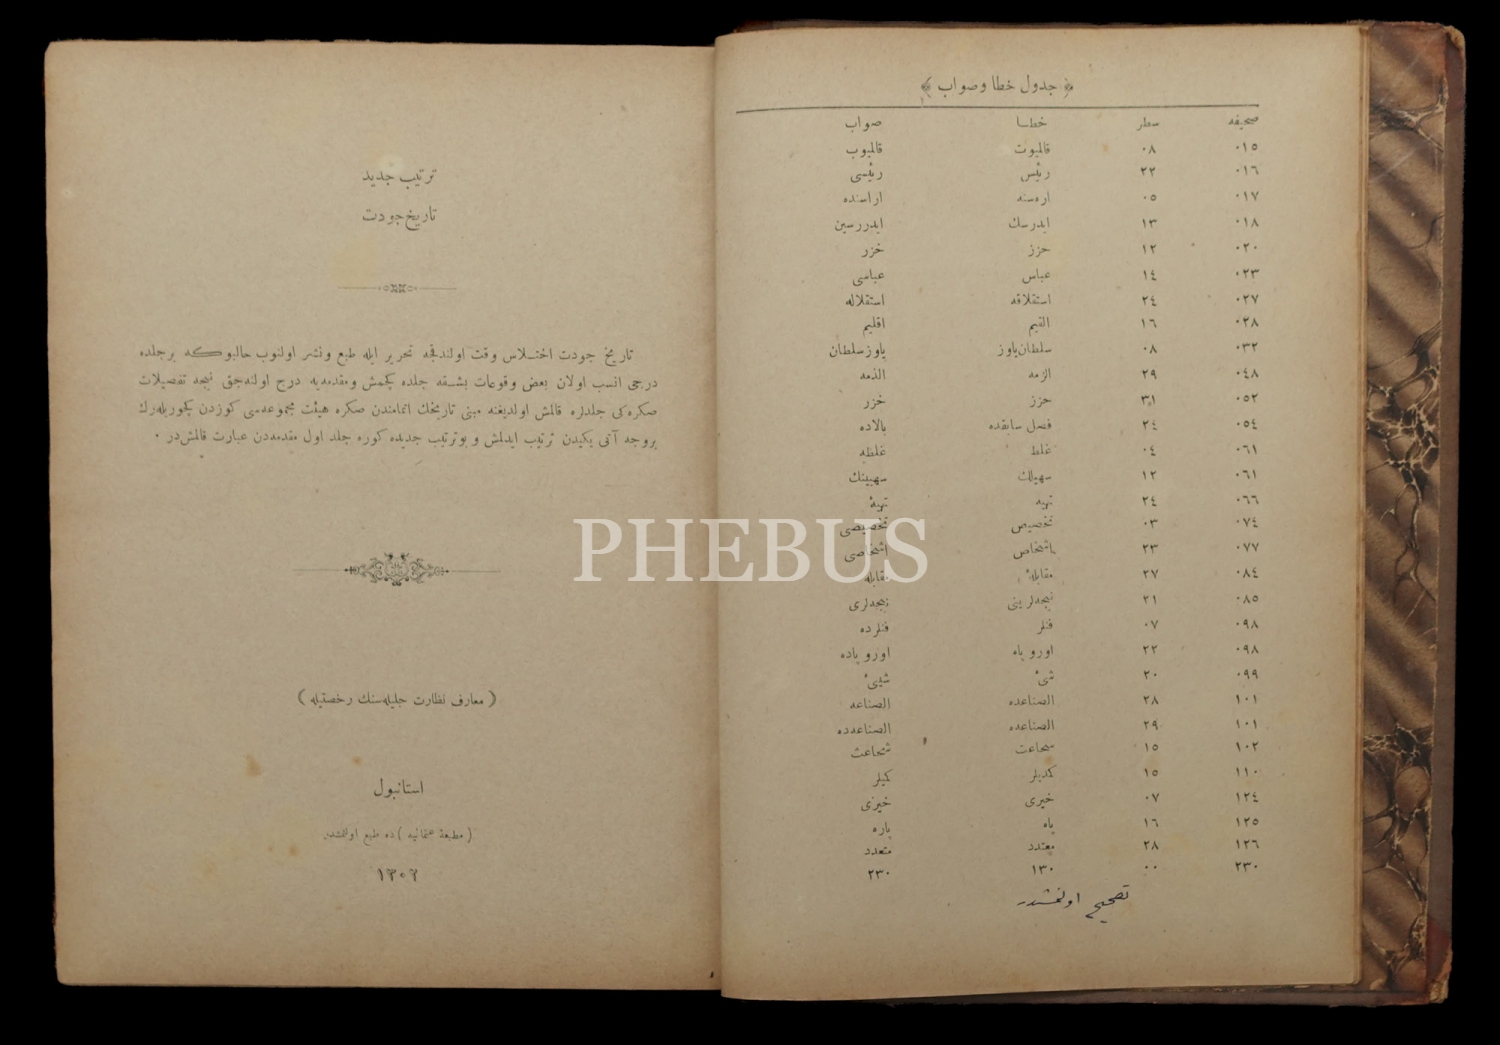 ترتيب جديد
تاريخ جودت
تاريخ جودت اختلاس وقت اولندقجه تحرير ايله طبع ونشر اولنوب حالبوكه برجلده
درجى انسب اولان بعض وقوعات بشقه جلده كچمش ومقدمه‌يه درج اولنه‌جق نيجه تفصيلات
صكره‌كى جلدلره قالمش اولديغنه مبنى تاريخك اتمامندن صكره هيئت مجموعه‌سى كوزدن كچوريله‌رك
بروجه آتى يكيدن ترتيب ايدلمش و بوترتيب جديده كوره جلد اول مقدمه‌دن عبارت قالمش‌در ٠
( معارف نظارت جليله‌سنك رخصتيله )
استانبول
( مطبعهٔ عثمانيه ) ده طبع اولنمشدر
١٣٠٢
﴿ جدول خطا وصواب ﴾
صحيفه سطر خطـا صواب
٠١٥ ٠٨ قالميوت قالميوب
٠١٦ ٢٢ رئيس رئيسى
٠١٧ ٠٥ اره‌سنه اراسنده
٠١٨ ١٣ ايدرسك ايدررسين
٠٢٠ ١٢ حزز خزر
٠٢٣ ١٤ عباس عباسى
٠٢٧ ٢٤ استقلاقه استقلاله
٠٢٨ ١٦ القيم اقليم
٠٣٢ ٠٨ سلطان ياوز ياوز سلطان
٠٤٨ ٢٩ الزمه الذمه
٠٥٢ ٣١ حزز خزر
٠٥٤ ٢٤ فصل سابقده بالاده
٠٦١ ٠٤ غلط غلطه
٠٦١ ١٢ سهيلك سهيينك
٠٦٦ ٢٤ تهيه تهيهٔ
٠٧٤ ٠٣ تخصيص تخصيصى
٠٧٧ ٢٣ باشخاص اشخاصى
٠٨٤ ٢٧ مقابلهٔ مقابله
٠٨٥ ٢١ نيجه‌لرينى نيجه‌لرى
٠٩٨ ٠٧ فنلر فنلرده
٠٩٨ ٢٢ اوروپاه اوروپاده
٠٩٩ ٢٠ شئ شيئ
١٠١ ٢٨ الصناعده الصناعه
١٠١ ٢٩ الصناعده الصناعه‌ده
١٠٢ ١٥ سحاعت شجاعت
١١٠ ١٥ كمديلر كميلر
١٢٤ ٠٧ خيرى خيزى
١٢٥ ١٦ پاه پاره
١٢٦ ٢٨ معتدد متعدد
٢٣٠ ٠٠ ١٣٠ ٢٣٠
تصحيح اولنمشدر
PHEBUS